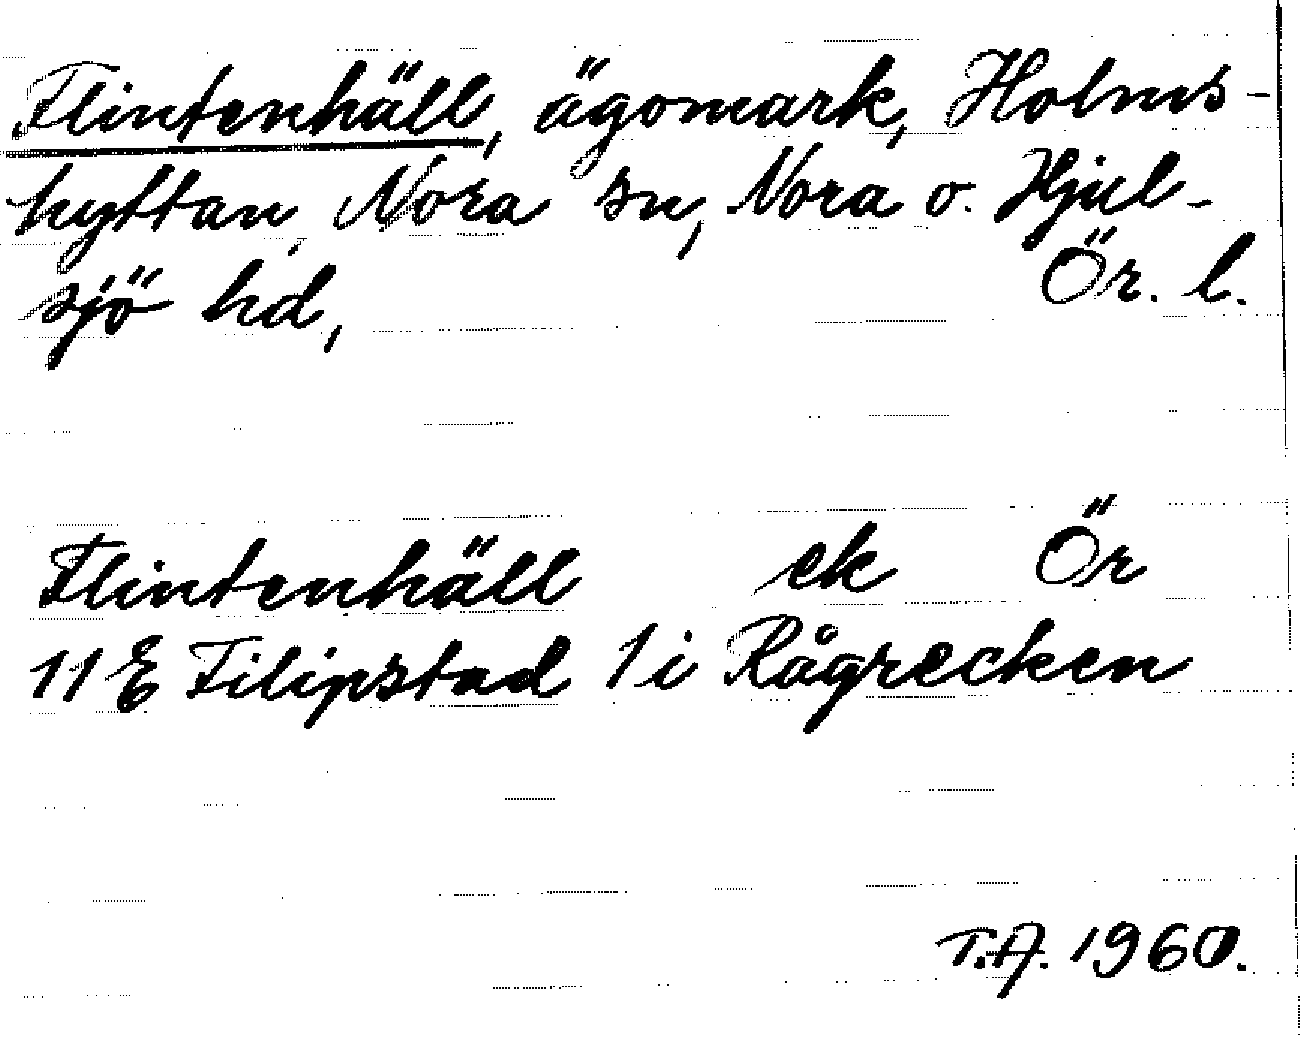 Flintenhäll, ägomark, Holms-
hyttan, Nora sn, Nora o. Hjul-
sjö hd, Ör. l.
Flintenhäll ek Ör
11 E Filipstad 1 i Rågrecken
T.A. 1960.